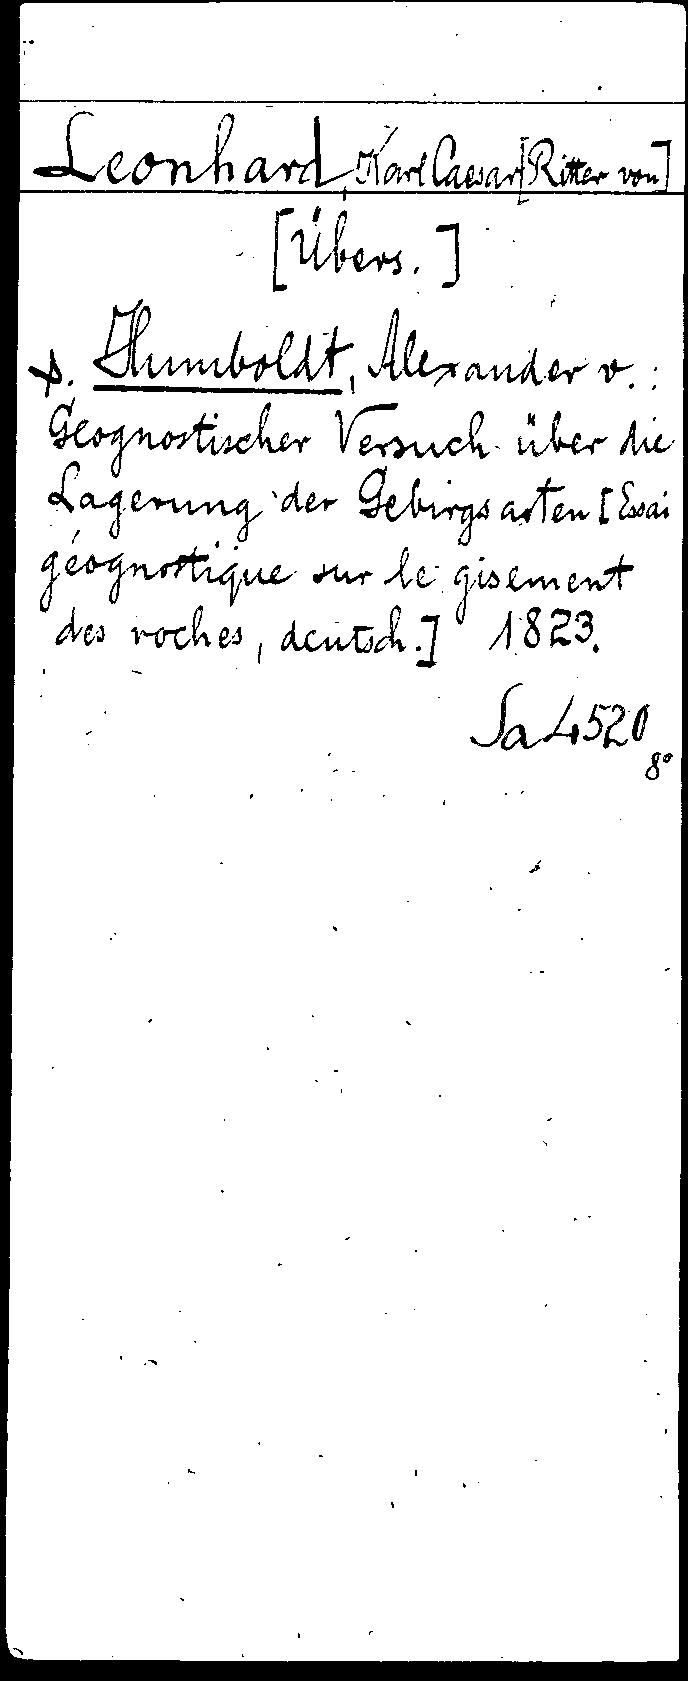 Leonhard, Karl Caesar [Ritter von]
[Übers.]
s. Humboldt, Alexander v.:
Geognostischer Versuch über die
Lagerung der Gebirgsarten [Essai
géognostique sur le gisement
des roches, deutsch.] 1823.
Sa 4520
8°